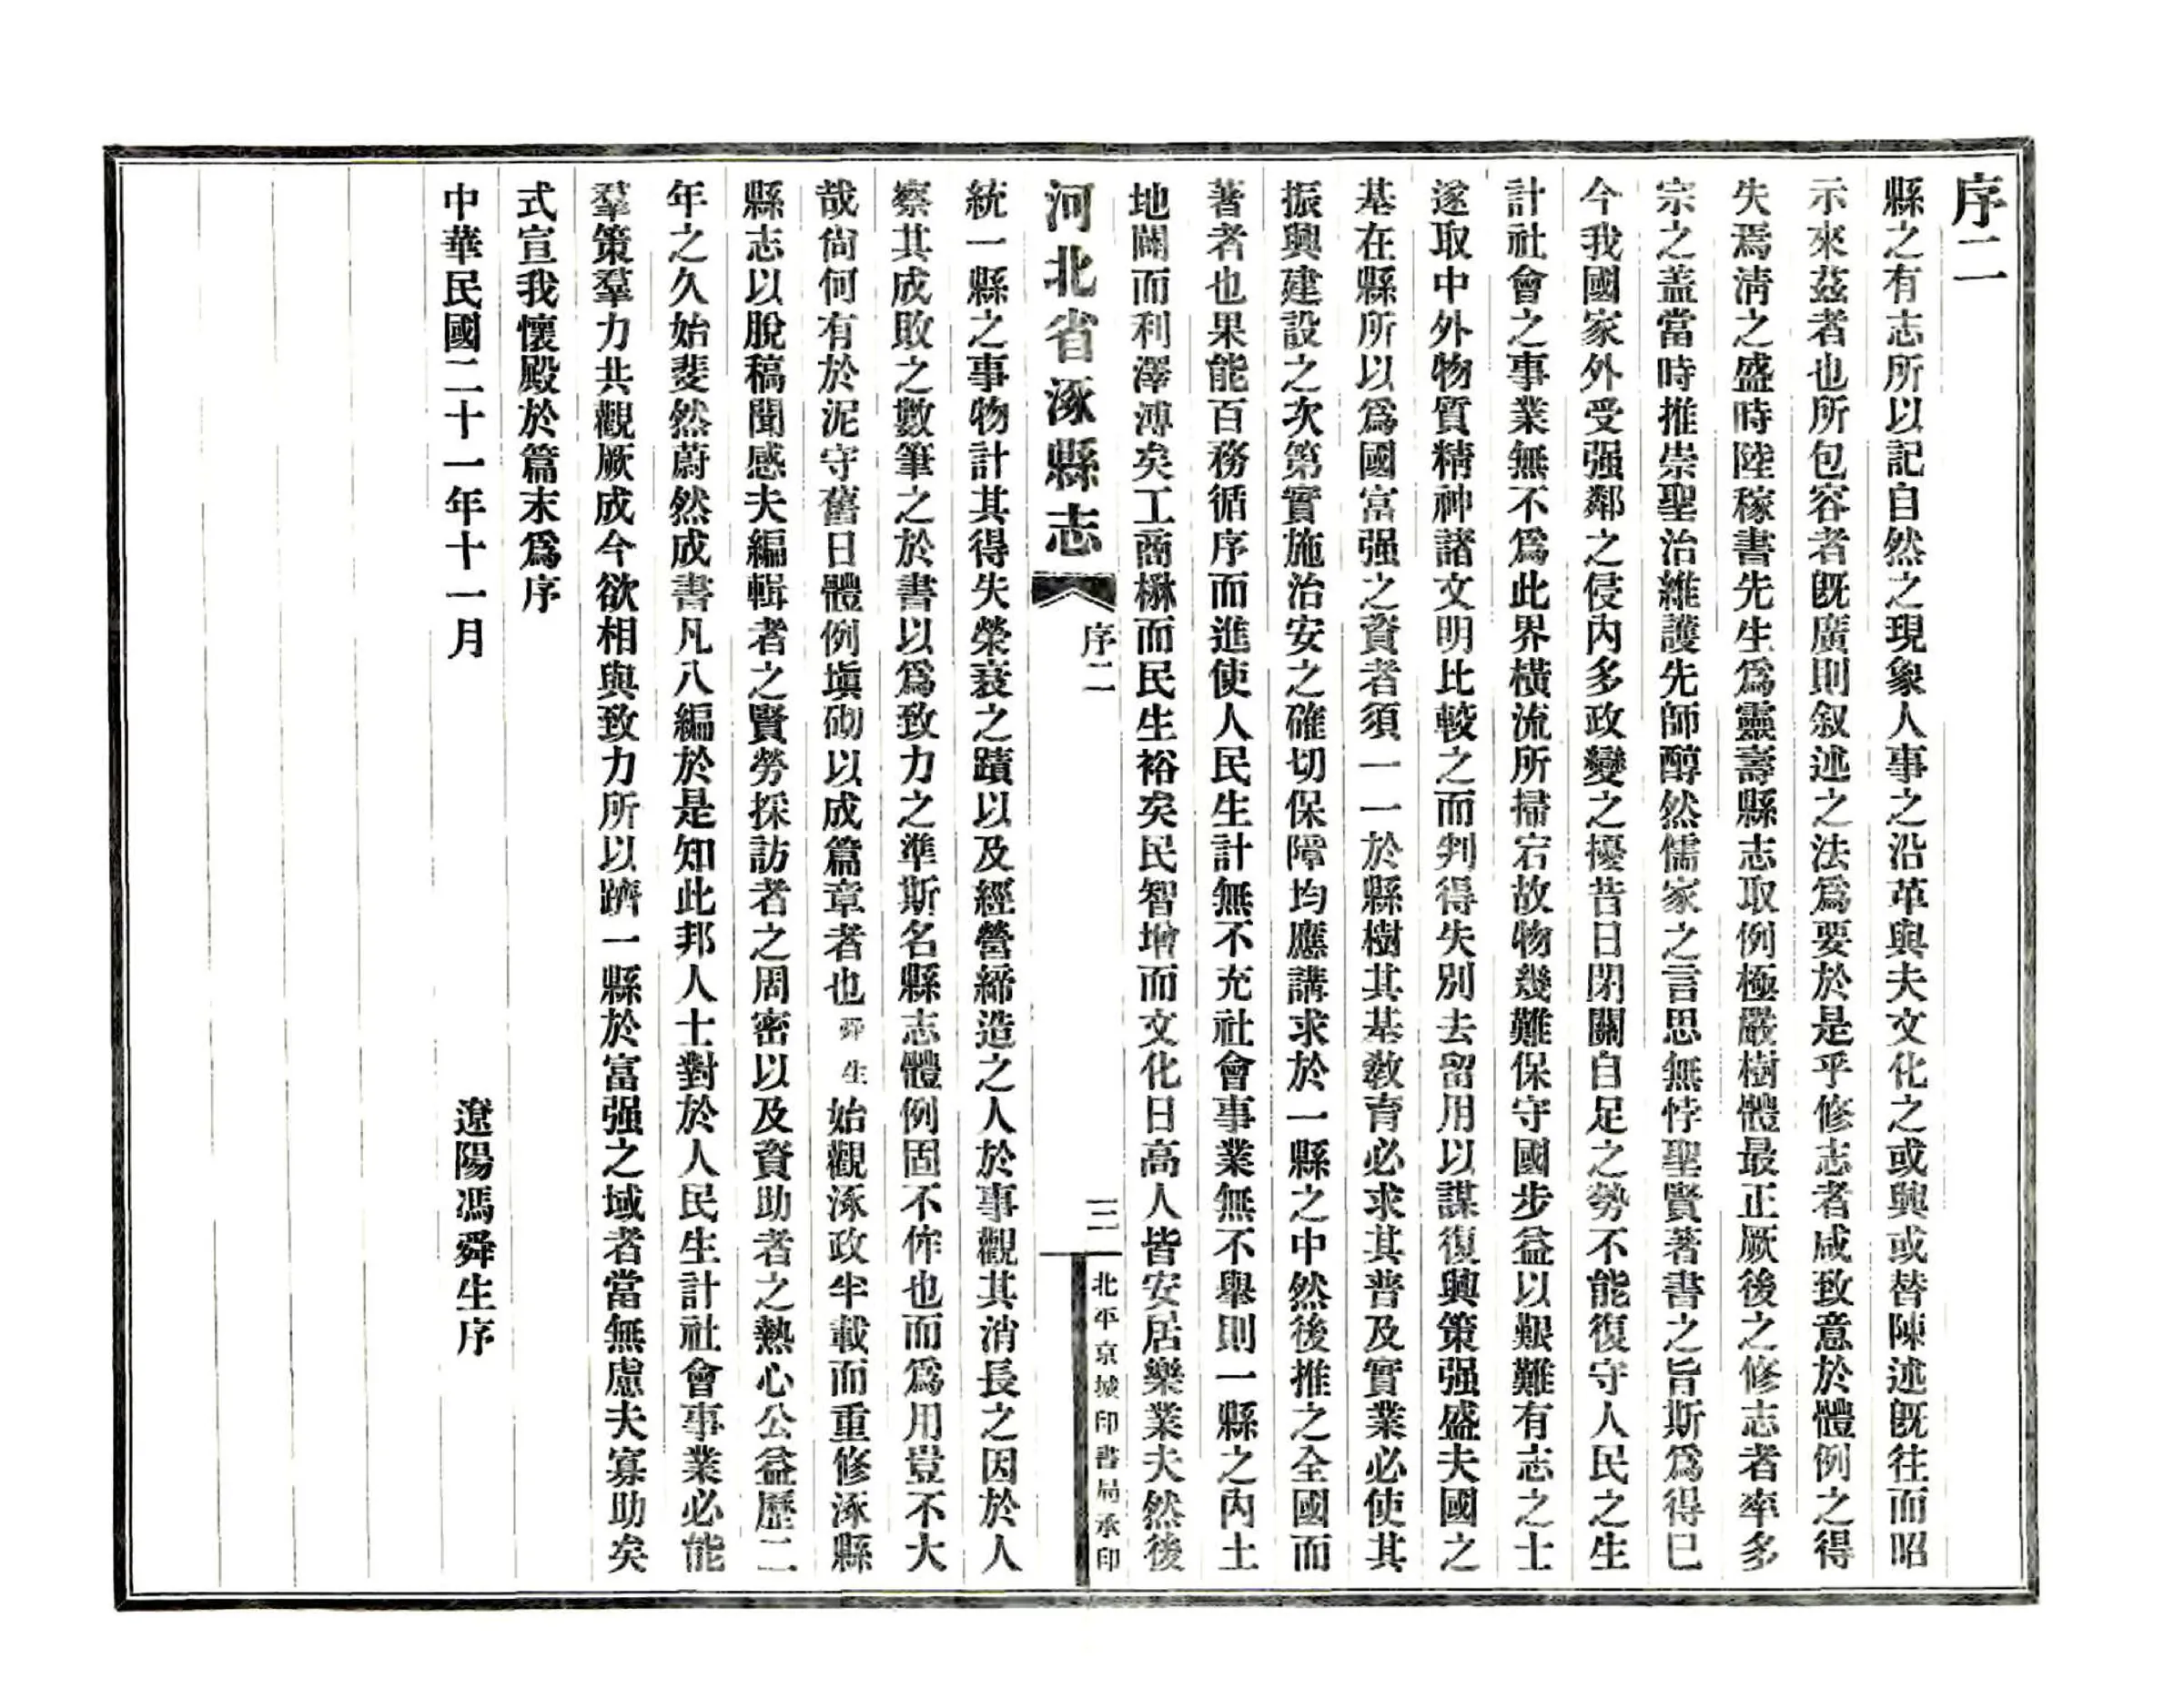 序二
縣之有志所以記自然之現象人事之沿革與夫文化之或興或替陳述旣往而昭
示來茲者也所包容者旣廣則叙述之法爲要於是乎修志者咸致意於體例之得
失焉淸之盛時陸稼書先生爲靈壽縣志取例極嚴樹體最正厥後之修志者率多
宗之盖當時推崇聖治維護先師醇然儒家之言思無悖聖賢著書之旨斯爲得已
今我國家外受强鄰之侵內多政變之擾昔日閉關自足之勢不能復守人民之生
計社會之事業無不爲此界橫流所掃宕故物幾難保守國步益以艱難有志之士
遂取中外物質精神諸文明比較之而判得失別去留用以謀復興策强盛夫國之
基在縣所以爲國富强之資者須一一於縣樹其基敎育必求其普及實業必使其
振興建設之次第實施治安之確切保障均應講求於一縣之中然後推之全國而
著者也果能百務循序而進使人民生計無不充社會事業無不舉則一縣之內土
地闢而利澤溥矣工商楙而民生裕矣民智增而文化日高人皆安居樂業夫然後
河北省涿縣志
序二
三
北平京城印書局承印
統一縣之事物計其得失榮衰之蹟以及經營締造之人於事觀其消長之因於人
察其成敗之數筆之於書以爲致力之準斯名縣志體例固不侔也而爲用豈不大
哉尙何有於泥守舊日體例塡砌以成篇章者也舜生始觀涿政半載而重修涿縣
縣志以脫稿聞感夫編輯者之賢勞採訪者之周密以及資助者之熱心公益歷二
年之久始斐然蔚然成書凡八編於是知此邦人士對於人民生計社會事業必能
羣策羣力共觀厥成今欲相與致力所以躋一縣於富强之域者當無慮夫寡助矣
式宣我懷殿於篇末爲序
中華民國二十一年十一月
遼陽馮舜生序